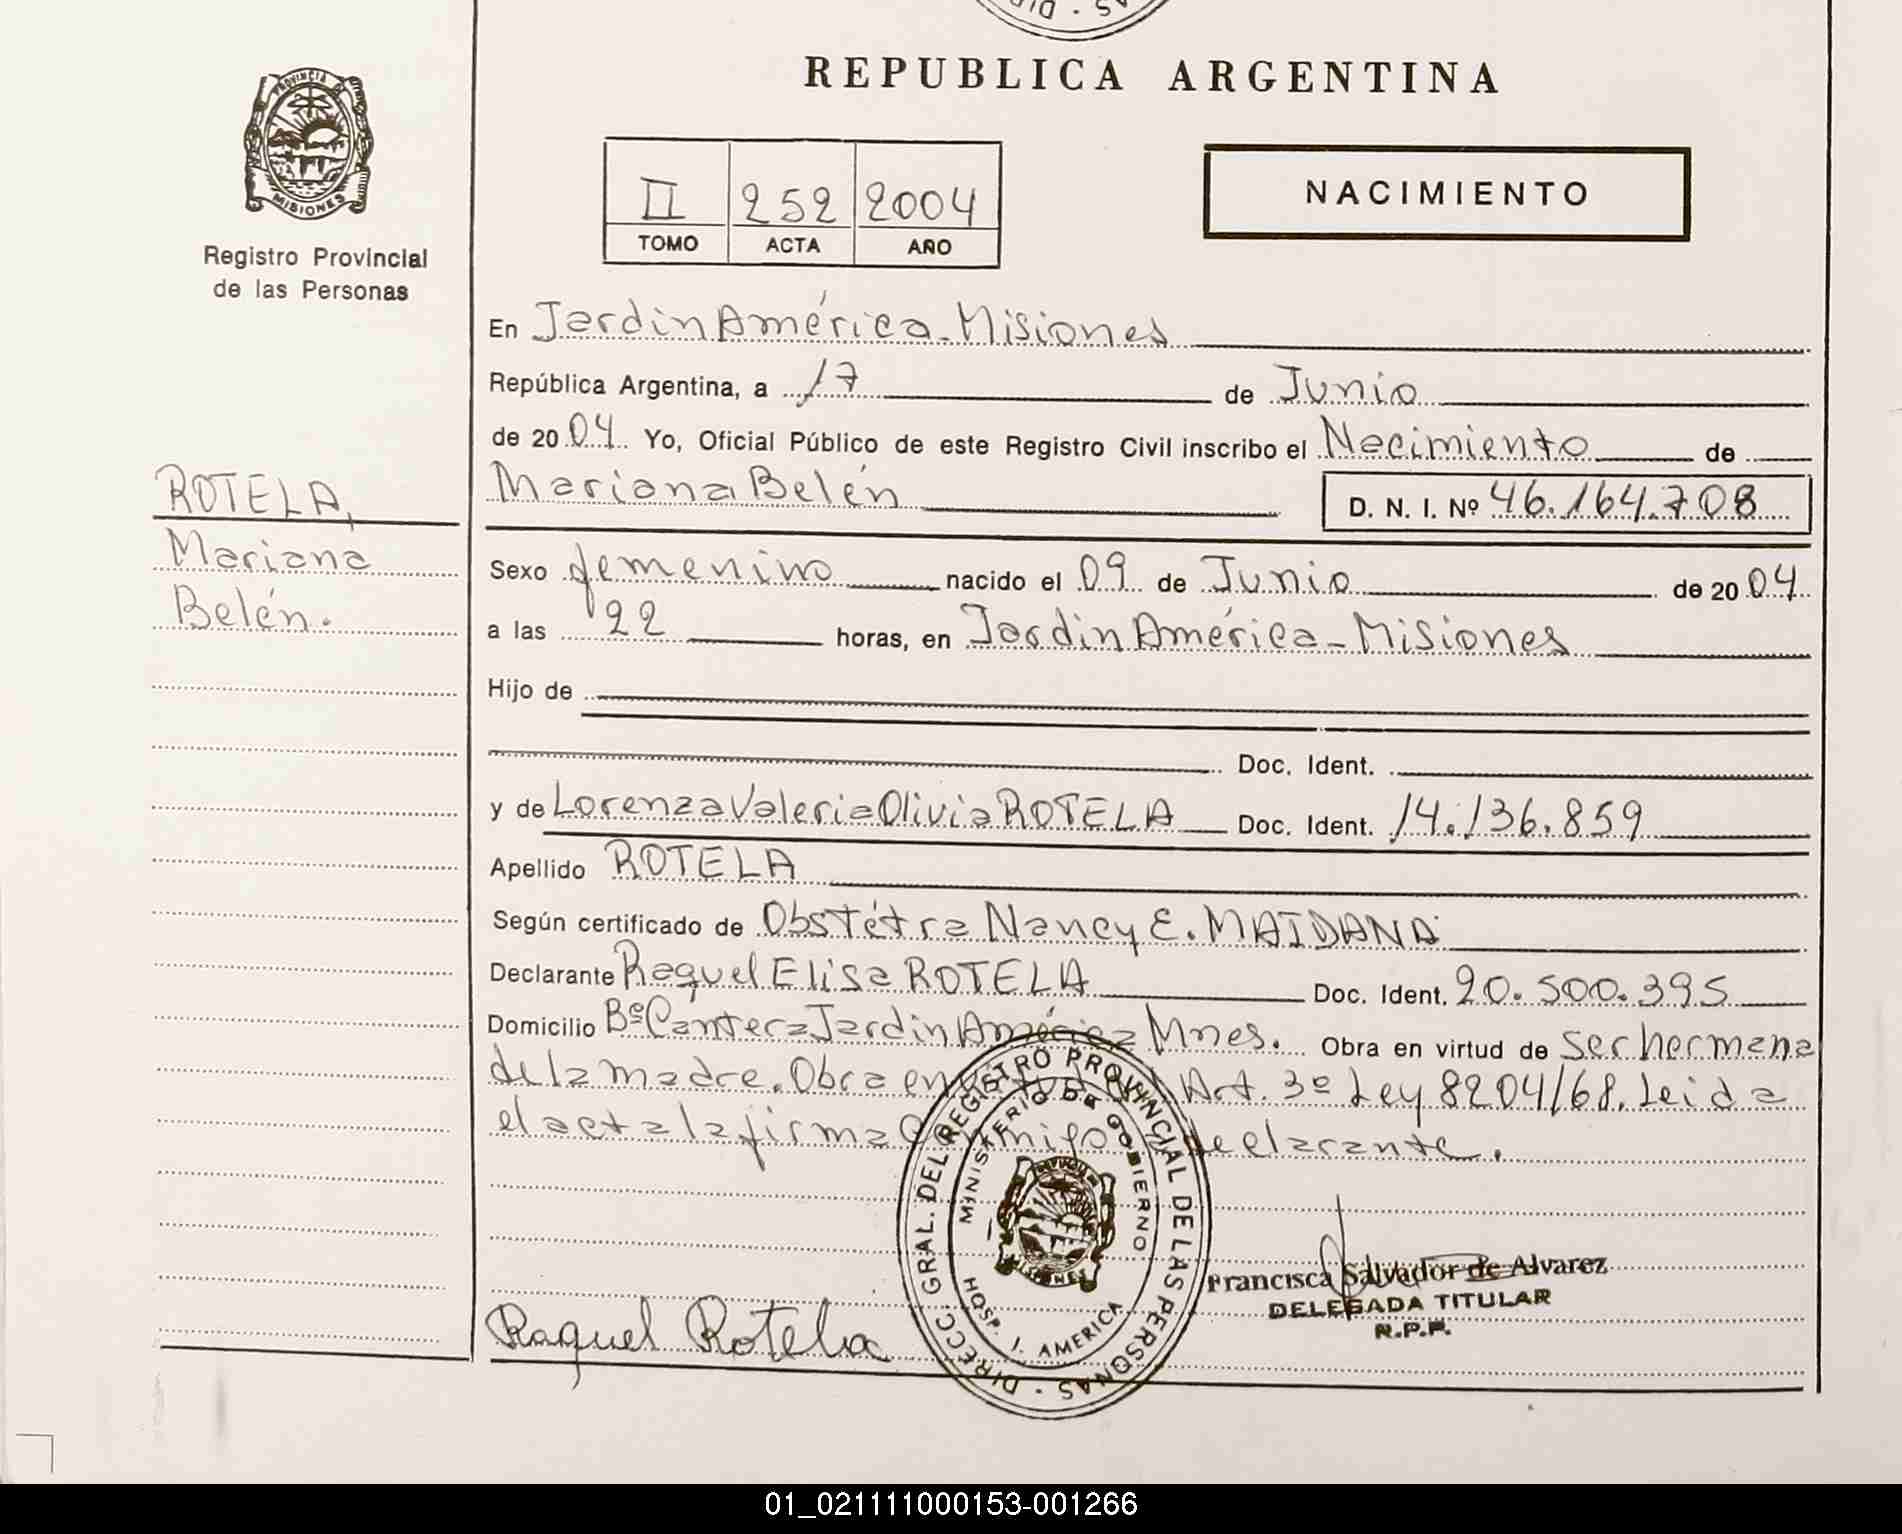 REPUBLICA ARGENTINA
PROVINCIA DE
MISIONES
Registro Provincial
de las Personas
II 252 2004
TOMO ACTA AÑO
NACIMIENTO
En Jardin América - Misiones
República Argentina, a 17 de Junio
de 2004 Yo, Oficial Público de este Registro Civil inscribo el Nacimiento de
Mariana Belén D. N. I. Nº 46.164.708
ROTELA,
Mariana
Belén.
Sexo femenino nacido el 09 de Junio de 2004
a las 22 horas, en Jardin América - Misiones
Hijo de
Doc. Ident.
y de Lorenza Valeria Olivia ROTELA Doc. Ident. 14.136.859
Apellido ROTELA
Según certificado de Obstétra Nancy E. MAIDANA
Declarante Raquel Elisa ROTELA Doc. Ident. 20.500.395
Domicilio Bº Cantera Jardin América Mnes. Obra en virtud de ser hermana
de la madre. Obra en Art. 3º Ley 8204/68. Leida
el acta la firma conmigo declarante.
DIRECC. GRAL. DEL REGISTRO PROVINCIAL DE LAS PERSONAS
MINISTERIO DE GOBIERNO
HOSP. J. AMERICA
MISIONES
Raquel Rotela
Francisca Salvador de Alvarez
DELEGADA TITULAR
R.P.P.
01_021111000153-001266